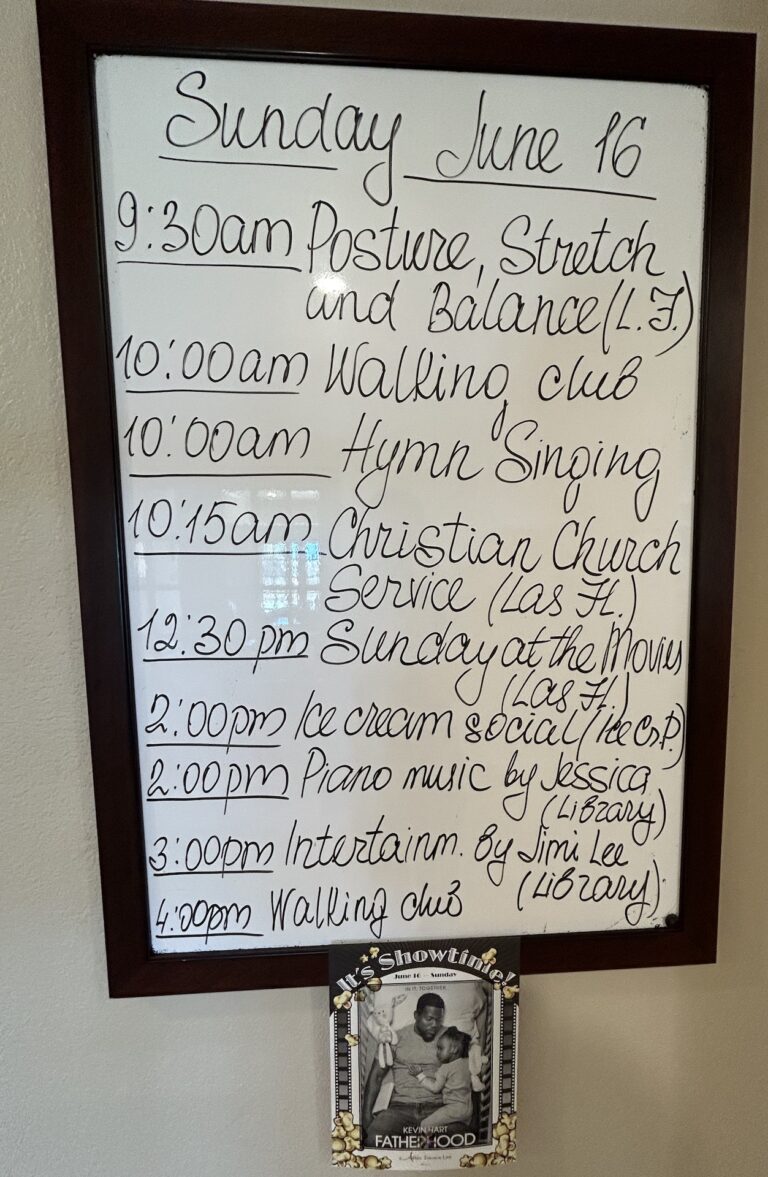 Sunday June 16
9:30am Posture, Stretch
and Balance (L.F.)
10:00am Walking club
10:00am Hymn Singing
10:15am Christian Church
Service (Las Fl.)
12:30 pm Sunday at the Movies
(Las Fl.)
2:00pm Ice cream social (Ice Cr.P.)
2:00pm Piano music by Jessica
(Library)
3:00pm Intertainm. By Jimi Lee
(Library)
4:00pm Walking club
It's Showtime!
June 16 - Sunday
IN IT. TOGETHER.
KEVIN HART
FATHERHOOD